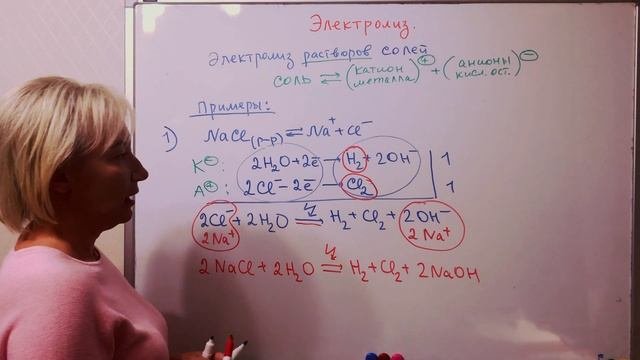 Электролиз.
Электролиз растворов солей
соль ⇌ (катион металла)⊕ + (анионы кисл. ост.)⊖
Примеры:
1) NaCl(р-р) ⇌ Na⁺ + Cl⁻
K⊖: 2H₂O + 2ē → H₂ + 2OH⁻ | 1
A⊕: 2Cl⁻ − 2ē → Cl₂ | 1
2Cl⁻ + 2H₂O ⇌ H₂ + Cl₂ + 2OH⁻
2Na⁺ 2Na⁺
2NaCl + 2H₂O ⇌ H₂ + Cl₂ + 2NaOH